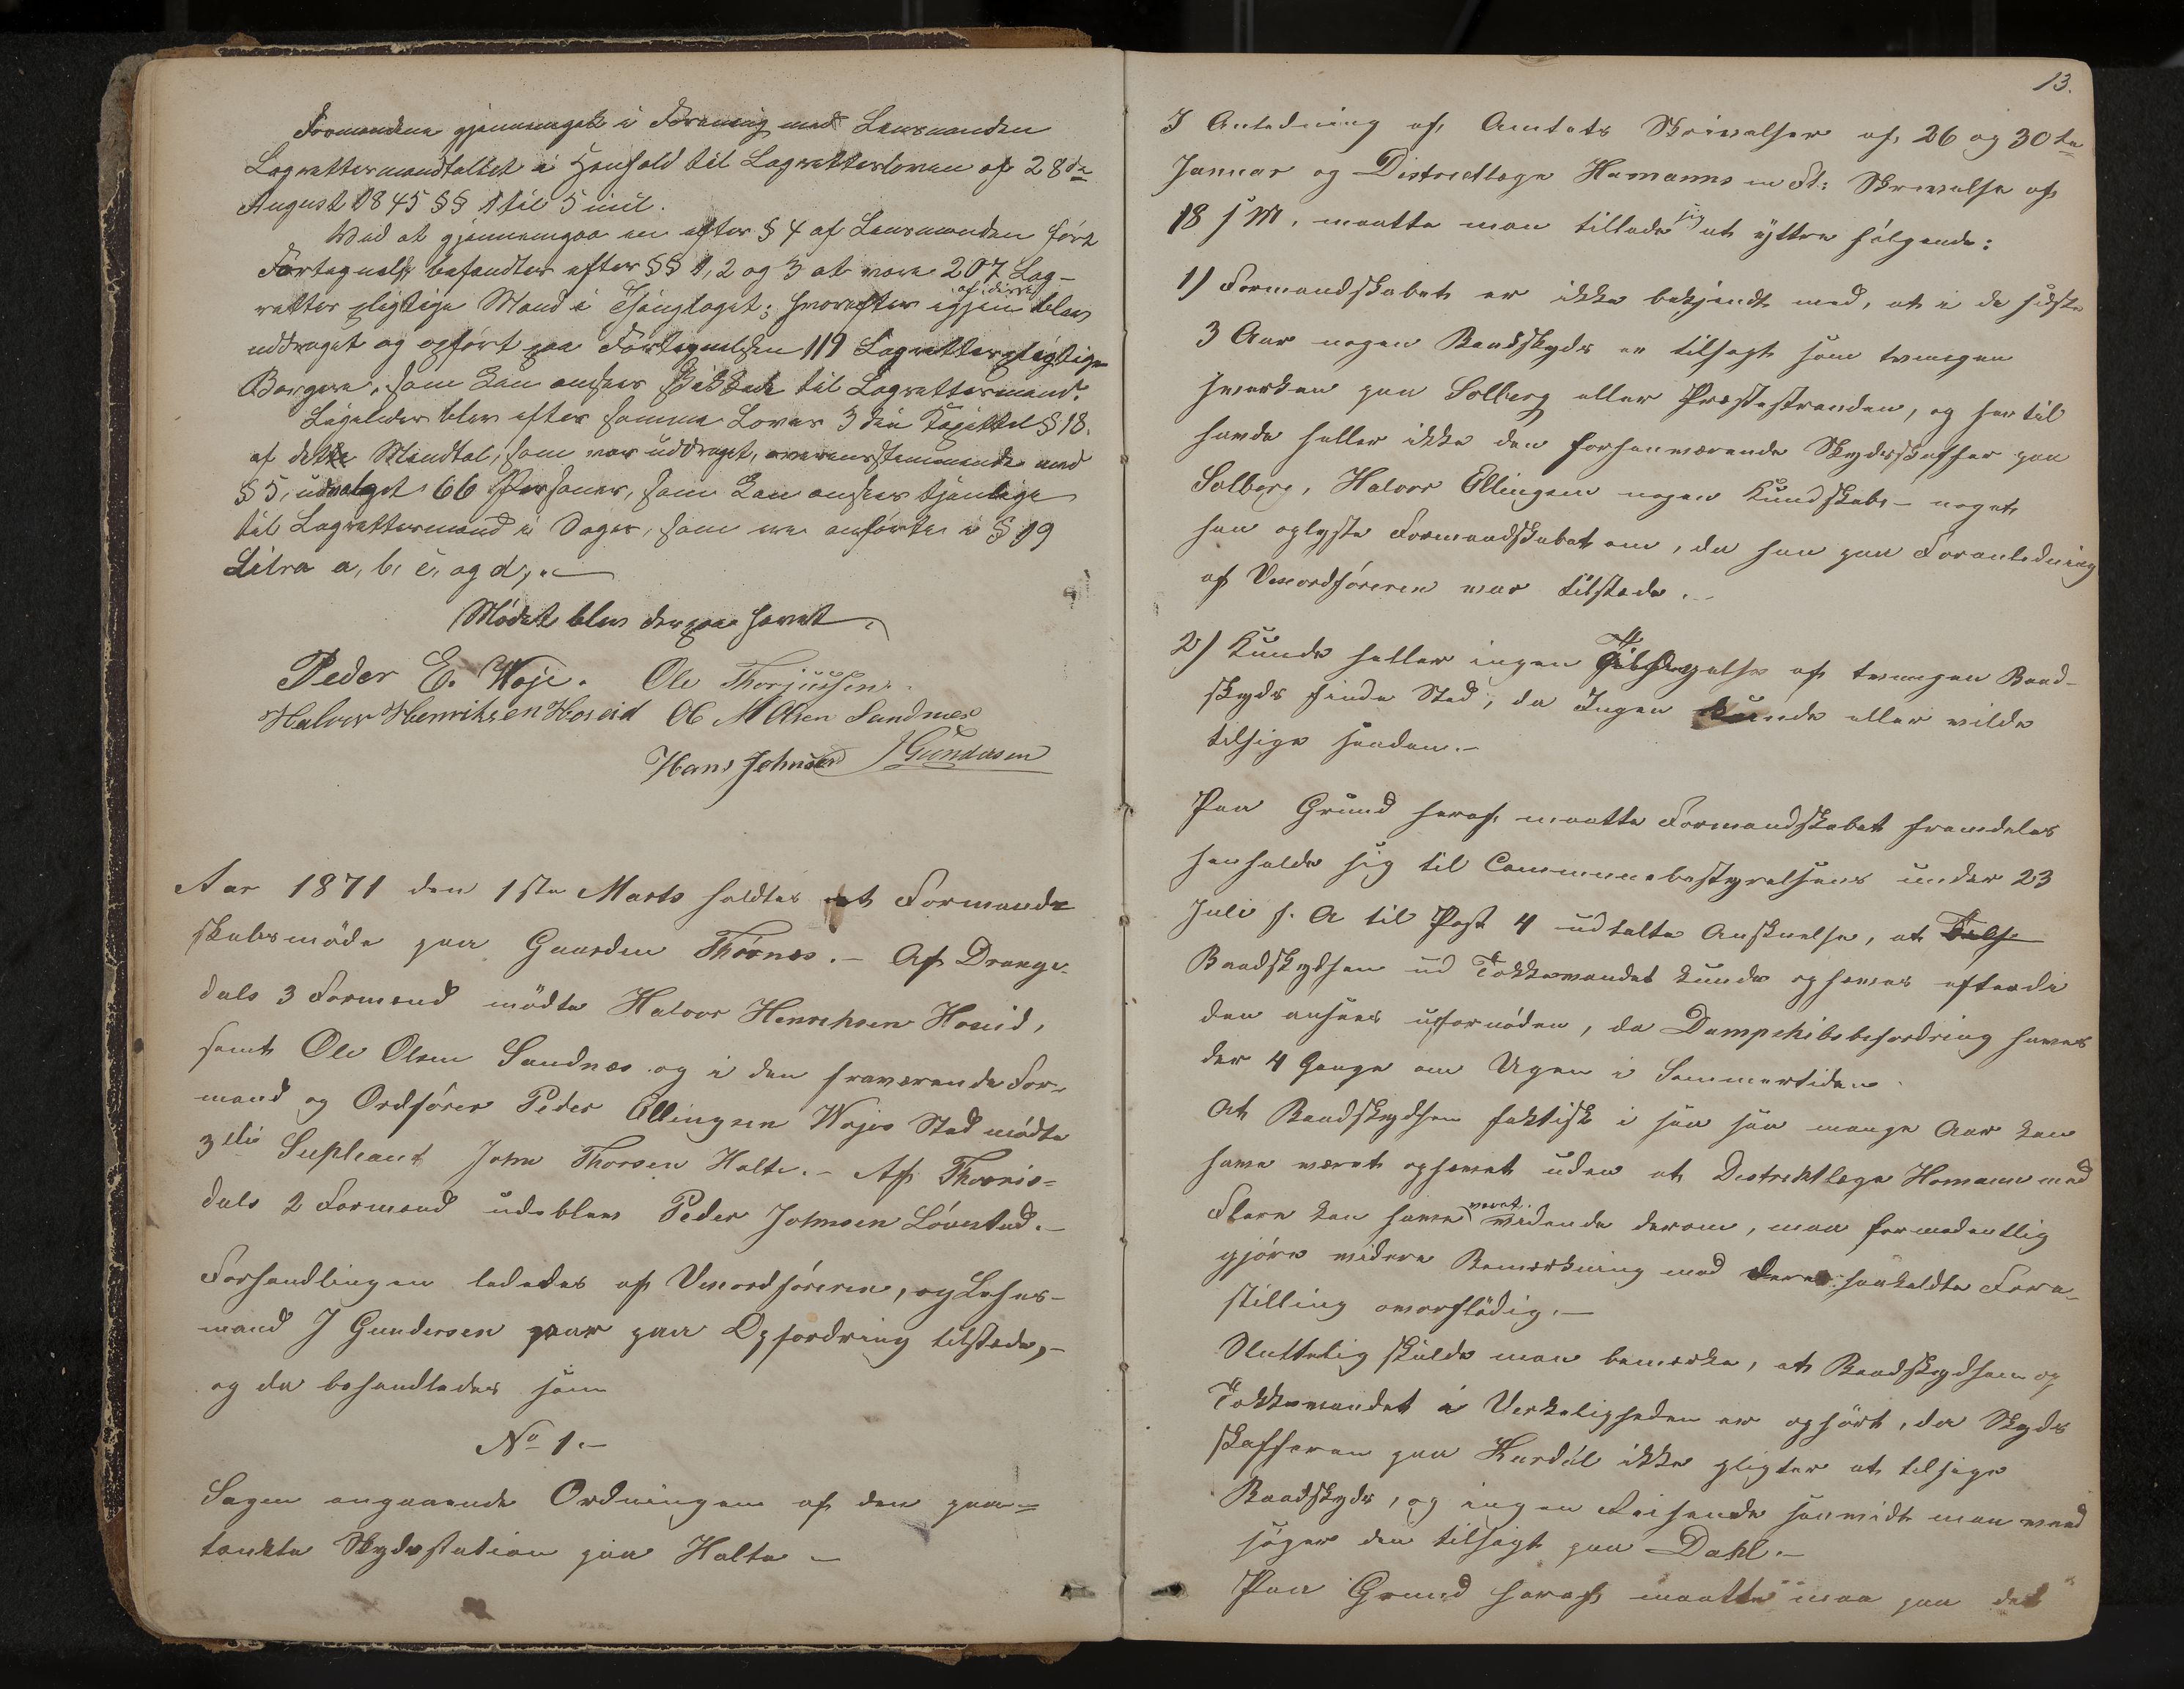 Formændene gjennemgik i Forening med Lensmanden
Lagrettesmandtallet i Henhold til Lagretteloven af 28de
August 1845 §§ 1 til 5 incl.
Ved at gjennemgaa en efter § 4 af Lensmanden ført
Fortegnelse befandtes efter §§ 1, 2 og 3 at være 207 Lag-
rettes pligtige Mænd i Thinglaget; hvorefter igjen af disse blev
uddraget og opført paa Fortegnelsen 119 Lagrettespligtige
Borgere, som kan ansees skikkede til Lagrettesmænd.
Ligeledes blev efter samme Lovs 3die Kapittel § 18.
af dette Mandtal, som var uddraget, overensstemmende med
§ 5, udvalget 66 Personer, som kan ansees tjenlige
til Lagrettesmænd i Sager, som ere anførte i § 19
Litra a, b, c, og d,
Mödet blev derpaa hævet.
Peder E. Woje. Ole Thorjussen.
Halvor Henriksen Hoseid Ol M Olsen Sandnes
Hans Johnsen J Gundersen
Aar 1871 den 1ste Marts holdtes et Formand-
skabsmöde paa Gaarden Thörnes. - Af Drange-
dals 3 Formænd mödte Halvor Henrehsen Hoseid,
samt Ole Olsen Sandnæs og i den fraværende For-
mand og Ordförer Peder Ellingsen Wojes Sted mödte
3die Supleant John Thorsen Holte. - Af Thörris-
dals 2 Formænd udeblev Peder Johnsen Lövestad. -
Forhandlingen lededes af Viceordföreren, og Lehns-
mand J Gundersen var paa Opfordring tilstede, -
og da behandledes som
No 1. -
Sagen angaaende Ordningen af den paa-
tænkte Skydsstation paa Holte -
13.
I Anledning af Amtets Skrivelser af 26 og 30te
Januar og Districtlæge Homanns m Fl: Skrivelse af
18 f M. maatte man tillade sig at yttre følgende:
1) Formandskabet er ikke bekjendt med, at i de sidste
3 Aar nogen Baadskyds er tilsagt som tvungen
hverken paa Solberg eller Præstestranden, og hertil
havde heller ikke den forhenværende Skydsskaffer paa
Solberg, Halvor Ellingsen nogen Kundskab - noget
han oplyste Formandskabet om, da han paa Foranledning
af Viceordföreren var tilstede. -
2) Kunde heller ingen Tilsigelse af tvungen Baad-
skyds finde Sted, da Ingen kunde eller vilde
tilsige saadan. -
Paa Grund heraf maatte Formandskabet fremdeles
henholde sig til Communebestyrelsens under 23
Juli f. A til Post 4 udtalte Anskuelse, at
Baadskydsen ud Tokkevandet kunde ophæves efterdi
den ansees ufornöden, da Dampskibsbefordring haves
der 4 Gange om Ugen i Sommertiden.
At Baadskydsen faktisk i saa saa mange Aar kan
have været ophævet uden at Destriktlæge Homann med
Flere kan have været vidende derom, maa formodentlig
gjöre videre Bemærkning med deres saakaldte Fore-
stilling overflödig. -
Sluttelig skulde man bemærke, at Baadskydsen og
Tokkevandet i Verkeligheden er ophört, da Skyds
skafferen paa Kurdøl ikke pligter at tilsige
Baadskyds, og ingen Reisende saavidt man veed
söger den tilsagt paa Dahl. -
Paa Grund heraf maatte man paa det